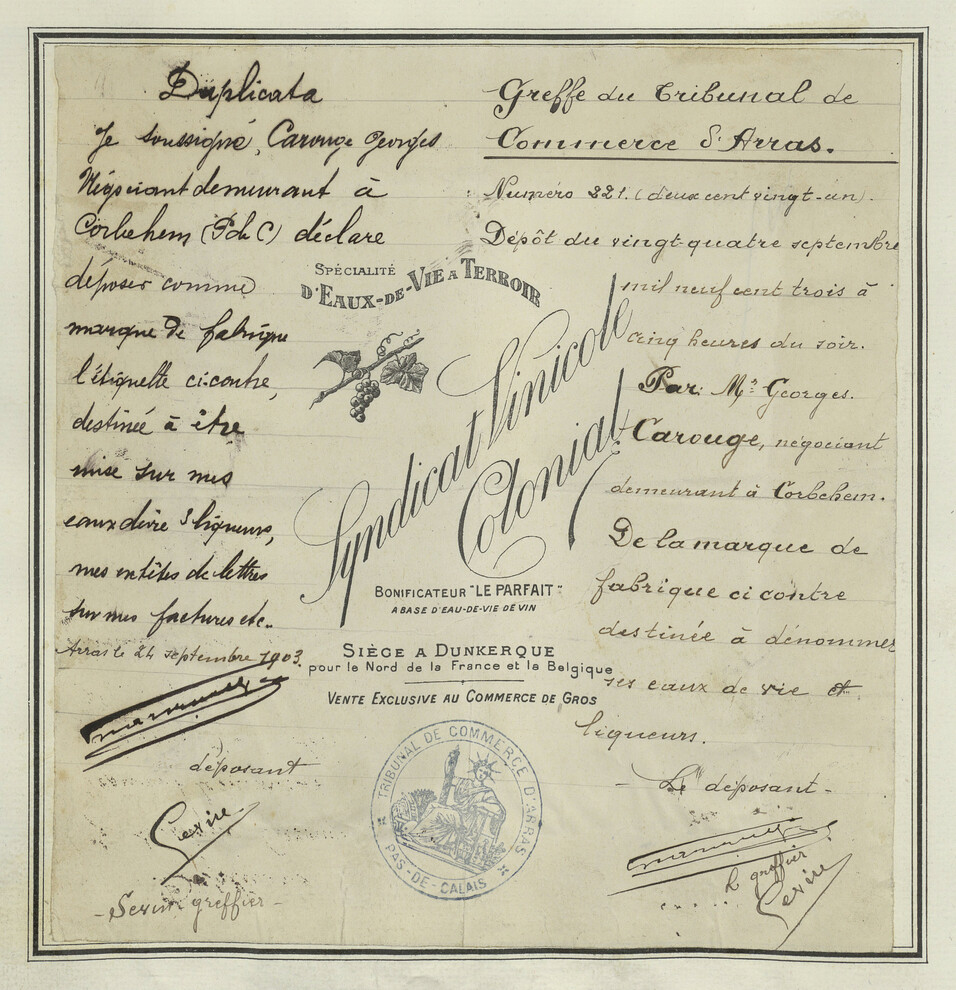 Duplicata
Je soussigné, Carouge Georges
Négociant demeurant à
Corbehem (P de C) déclare
déposer comme
marque de fabrique
l'étiquette ci-contre,
destinée à être
mise sur mes
eaux de vie & liqueurs,
mes entêtes de lettres
sur mes factures etc.
Arras le 24 septembre 1903.
déposant
Serire
greffier -
Greffe du Tribunal de
Commerce d'Arras.
Numéro 221. (deux cent vingt-un).
Dépôt du vingt-quatre septembre
mil neuf cent trois à
cinq heures du soir.
Par: Mr Georges.
Carouge, négociant
demeurant à Corbehem.
De la marque de
fabrique ci contre
destinée à dénommer
ses eaux de vie et
liqueurs.
- Le déposant -
le greffier
Serire
SPÉCIALITÉ
D'EAUX-DE-VIE A TERROIR
Syndicat Vinicole
Colonial
BONIFICATEUR "LE PARFAIT"
A BASE D'EAU-DE-VIE DE VIN
SIÈGE A DUNKERQUE
pour le Nord de la France et la Belgique
VENTE EXCLUSIVE AU COMMERCE DE GROS
TRIBUNAL DE COMMERCE D'ARRAS
PAS-DE-CALAIS